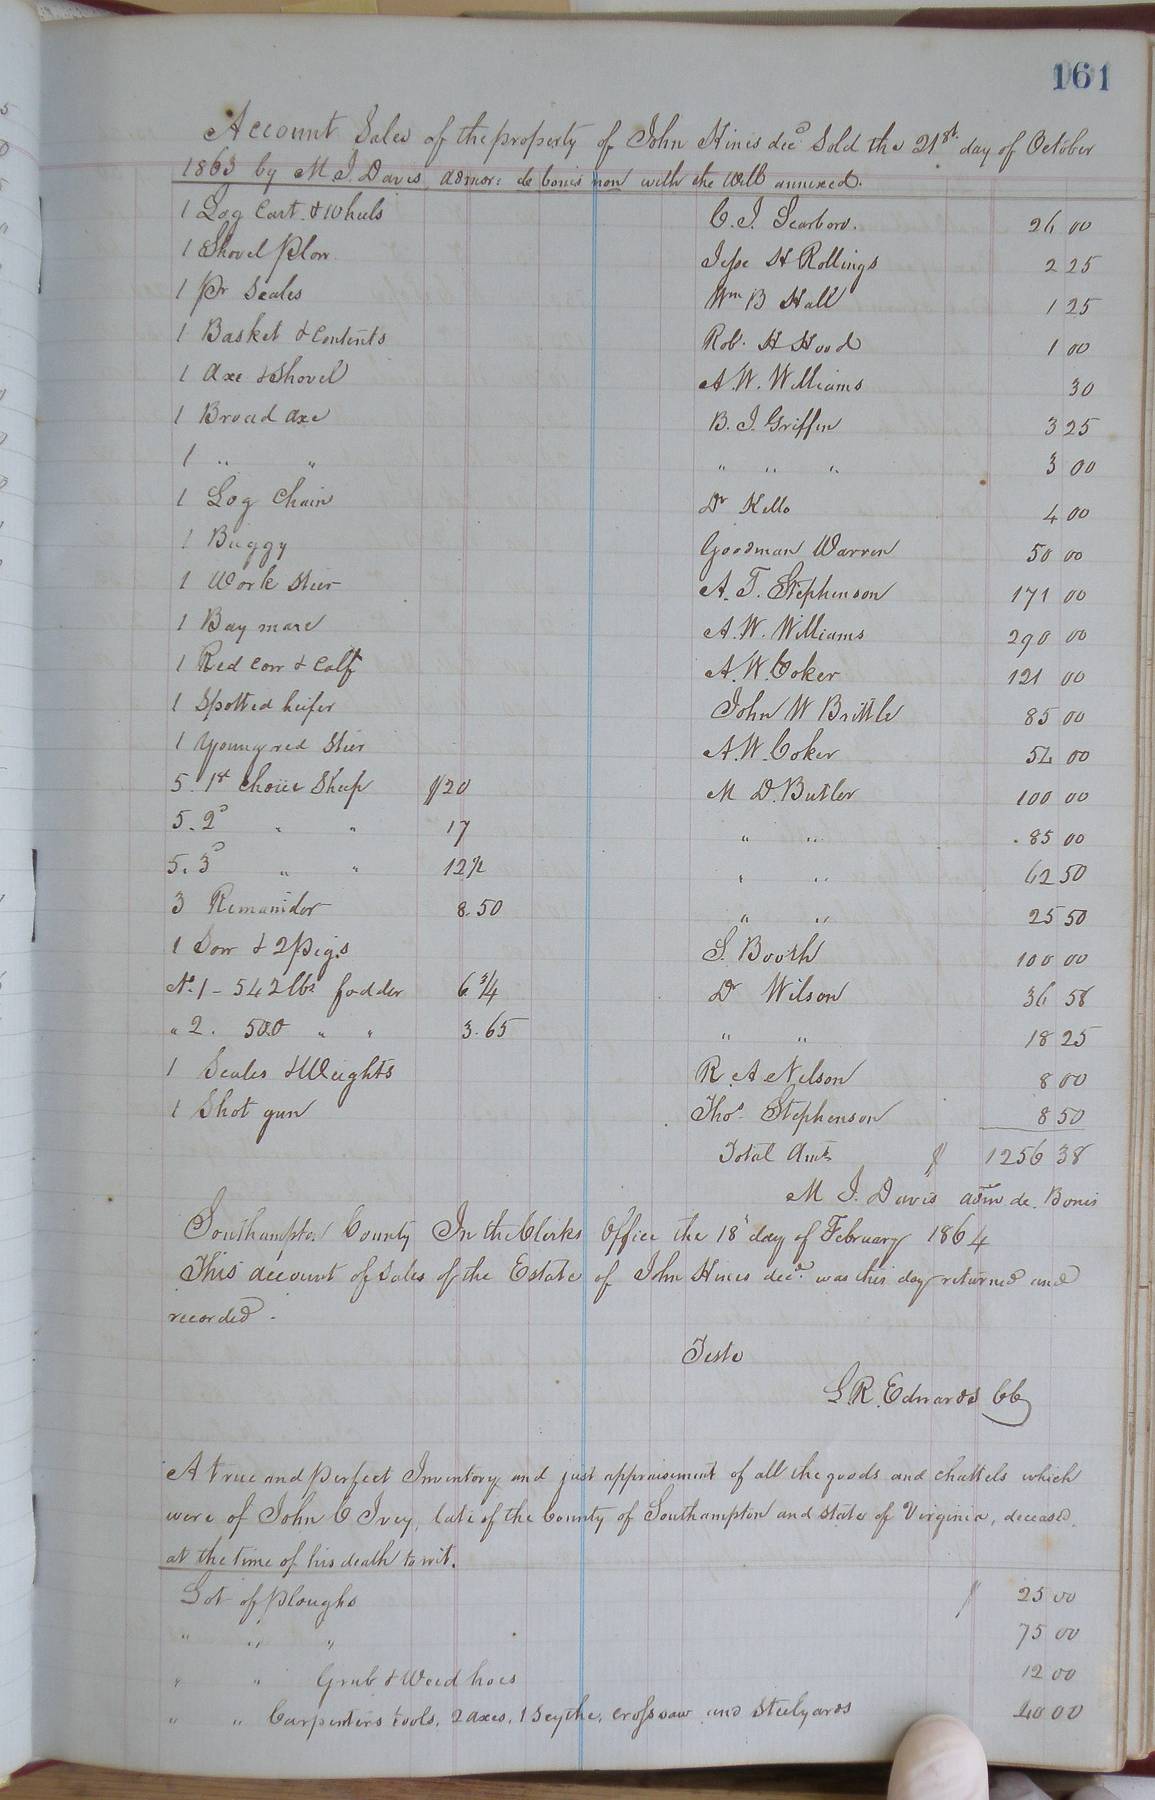 161
Account Sales of the property of John Hines decd Sold the 21st day of October
1863 by M J. Davis, admor: de bonis non with the Will annexed.
1 Log Cart & Wheels C. J. Scarboro. 26 00
1 Shovel Plow Jesse H Rollings 2 25
1 Pr Scales Wm B Hall 1 25
1 Basket & Contents Rob. H Hood 1 00
1 Axe & Shovel A. W. Williams 30
1 Broad Axe B. J. Griffin 3 25
1 " " " " " 3 00
1 Log Chain Dr Kello 4 00
1 Buggy Goodman Warren 50 00
1 Work Steer A. T. Stephenson 171 00
1 Bay mare A. W. Williams 290 00
1 Red Cow & Calf A. W. Coker 121 00
1 Spotted heifer John W Brittle 85 00
1 Young red Steer A. W. Coker 54 00
5. 1st Choice Sheep $20 M D. Butler 100 00
5. 2d " " 17 " " 85 00
5. 3d " " 12½ " " 62 50
3 Remainder 8.50 " " 25 50
1 Sow & 2 Pigs S. Booth 100 00
No. 1 - 542 lbs fodder 6 3/4 Dr Wilson 36 58
" 2. 500 " " 3.65 " " 18 25
1 Scales & Weights R. A Nelson 8 00
1 Shot gun Thos. Stephenson 8 50
Total Amt $ 1256 38
M J. Davis adm de. Bonis
Southampton County In the Clerks Office the 18 day of February 1864
This account of Sales of the Estate of John Hines decd. was this day returned and
recorded.
Teste
L. R. Edwards CC
A true and perfect Inventory and just appraisement of all the goods and chattels which
were of John C Ivey, late of the County of Southampton and State of Virginia, deceased,
at the time of his death to wit.
Lot of Ploughs $ 25 00
" " " 75 00
" " Grub & Weed hoes 12 00
" " Carpenters tools, 2 axes, 1 Scythe, cross saw and Steelyards 40 00